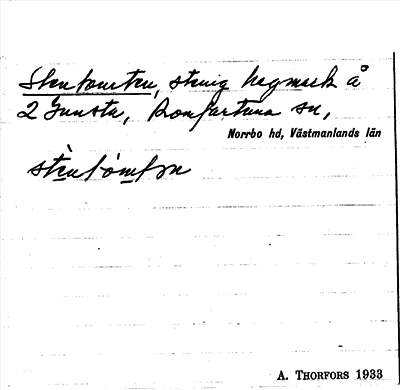 Stentomten, stenig hagmark å
2 Gunsta, Romfartuna sn,
Norrbo hd, Västmanlands län
A. THORFORS 1933